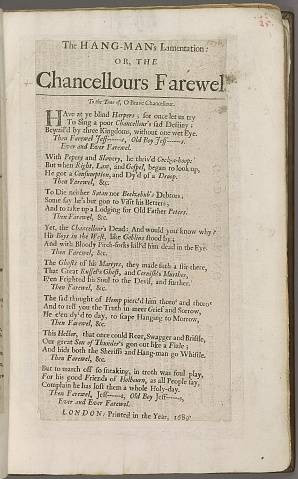 The HANG-MAN's Lamentation:
OR, THE
Chancellours Farewel
To the Tune of, O Brave Chancellour.
Have at ye blind Harpers; for once let us try
To Sing a poor Chancellor's sad Destiny;
Bewail'd by three Kingdoms, without one wet Eye.
Then Farewel Jeff——s, Old Boy Jeff——s,
Ever and Ever Farewel.
With Popery and Slavery, he thriv'd Cock-a-hoop:
But when Right, Law, and Gospel, began to look up,
He got a Consumption, and Dy'd of a Droop.
Then Farewel, &c.
To Die neither Satan nor Beelzebub's Debtors;
Some say he's but gon to Visit his Betters;
And to take up a Lodging for Old Father Peters.
Then Farewel, &c.
Yet, the Chancellor's Dead; And would you know why?
His Boys in the West, like Goblins stood by;
And with Bloody Pitch-forks kill'd him dead in the Eye.
Then Farewel, &c.
The Ghosts of his Martyrs, they made such a stir there,
That Great Russel's Ghost, and Cornish's Murther,
E'en Frighted his Soul to the Devil, and further.
Then Farewel, &c.
The sad thought of Hemp pierc'd him thoro' and thoro'
And to tell you the Truth in meer Grief and Sorrow,
He e'en dy'd to day, to scape Hanging to Morrow,
Then Farewel, &c.
This Hector, that once could Roar, Swagger and Bristle,
Our great Son of Thunder's gon out like a
And bids both the Sheriffs and Hang-man go Whistle.
Then Farewel, &c.
But to march off so sneaking, in troth was foul play,
For his good Friends of Holbourn, as all People say,
Complain he has lost them a whole Holy-day.
Then Farewel, Jeff——s, Old Boy Jeff——s,
Ever and Ever Farewel.
LONDON: Printed in the Year, 1689